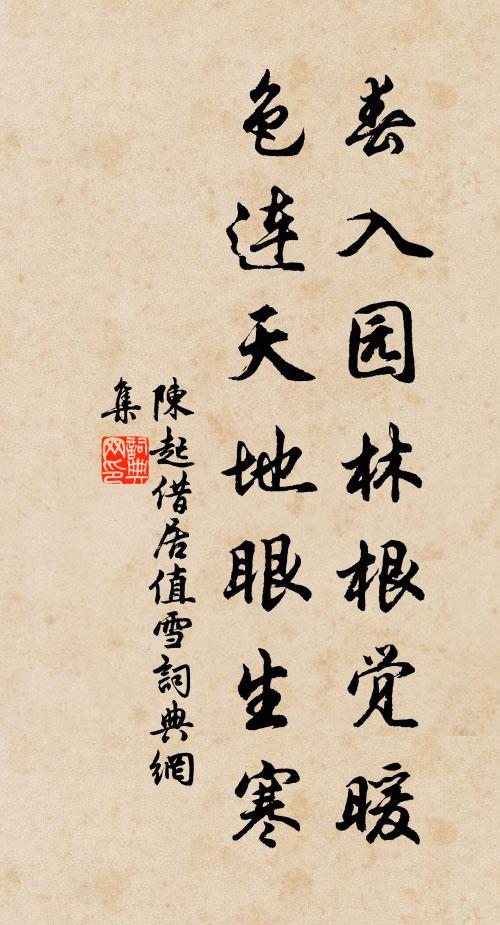 春入园林根觉暖
色连天地眼生寒
陳起借居值雪詞典網
集
詞典
网印